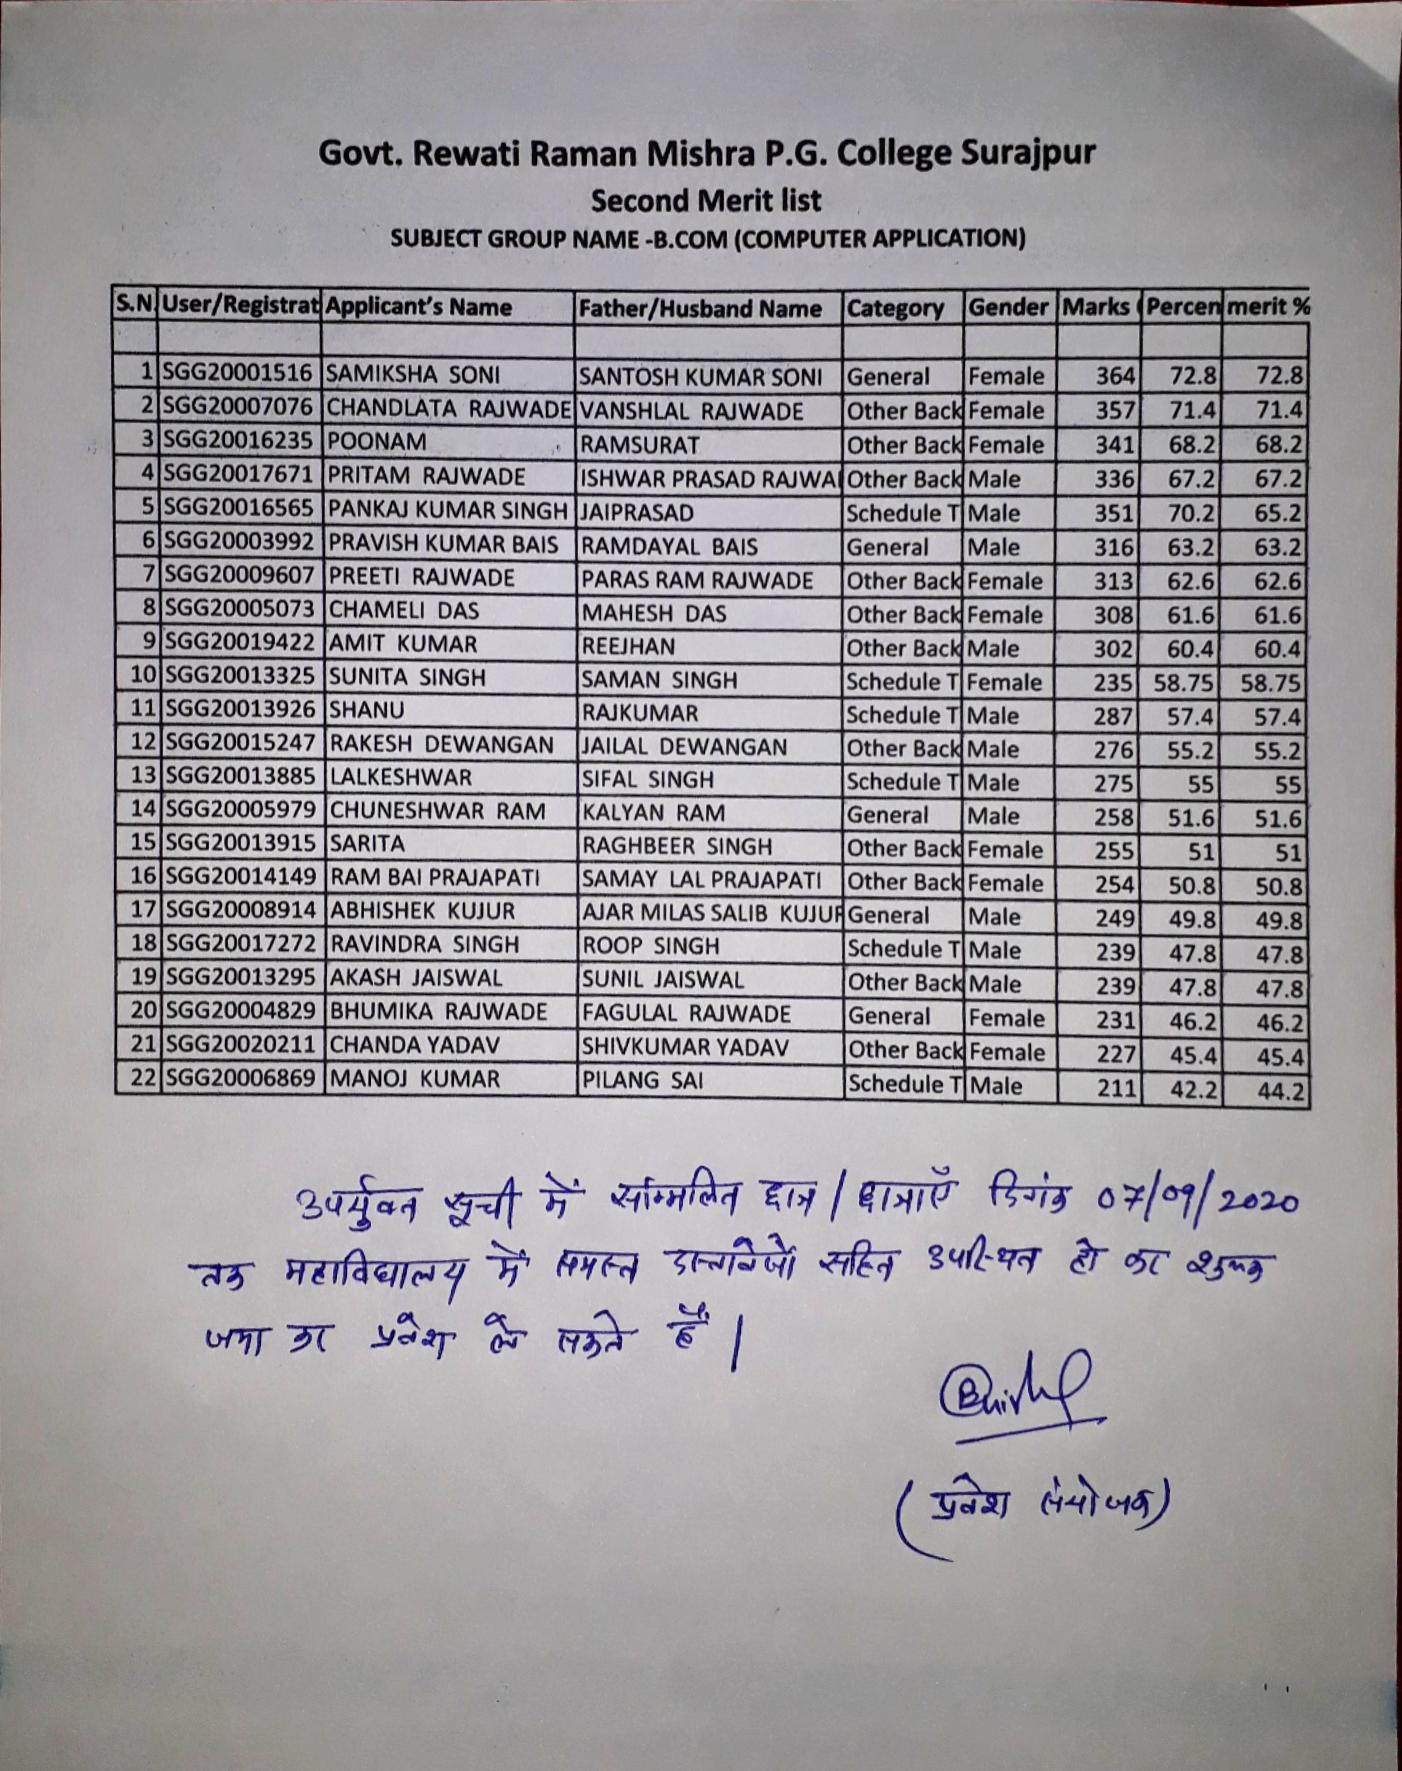 Govt. Rewati Raman Mishra P.G. College Surajpur
Second Merit list
SUBJECT GROUP NAME -B.COM (COMPUTER APPLICATION)
S.N User/Registrat Applicant's Name Father/Husband Name Category Gender Marks ( Percen merit %
1 SGG20001516 SAMIKSHA SONI SANTOSH KUMAR SONI General Female 364 72.8 72.8
2 SGG20007076 CHANDLATA RAJWADE VANSHLAL RAJWADE Other Back Female 357 71.4 71.4
3 SGG20016235 POONAM RAMSURAT Other Back Female 341 68.2 68.2
4 SGG20017671 PRITAM RAJWADE ISHWAR PRASAD RAJWA Other Back Male 336 67.2 67.2
5 SGG20016565 PANKAJ KUMAR SINGH JAIPRASAD Schedule T Male 351 70.2 65.2
6 SGG20003992 PRAVISH KUMAR BAIS RAMDAYAL BAIS General Male 316 63.2 63.2
7 SGG20009607 PREETI RAJWADE PARAS RAM RAJWADE Other Back Female 313 62.6 62.6
8 SGG20005073 CHAMELI DAS MAHESH DAS Other Back Female 308 61.6 61.6
9 SGG20019422 AMIT KUMAR REEJHAN Other Back Male 302 60.4 60.4
10 SGG20013325 SUNITA SINGH SAMAN SINGH Schedule T Female 235 58.75 58.75
11 SGG20013926 SHANU RAJKUMAR Schedule T Male 287 57.4 57.4
12 SGG20015247 RAKESH DEWANGAN JAILAL DEWANGAN Other Back Male 276 55.2 55.2
13 SGG20013885 LALKESHWAR SIFAL SINGH Schedule T Male 275 55 55
14 SGG20005979 CHUNESHWAR RAM KALYAN RAM General Male 258 51.6 51.6
15 SGG20013915 SARITA RAGHBEER SINGH Other Back Female 255 51 51
16 SGG20014149 RAM BAI PRAJAPATI SAMAY LAL PRAJAPATI Other Back Female 254 50.8 50.8
17 SGG20008914 ABHISHEK KUJUR AJAR MILAS SALIB KUJUR General Male 249 49.8 49.8
18 SGG20017272 RAVINDRA SINGH ROOP SINGH Schedule T Male 239 47.8 47.8
19 SGG20013295 AKASH JAISWAL SUNIL JAISWAL Other Back Male 239 47.8 47.8
20 SGG20004829 BHUMIKA RAJWADE FAGULAL RAJWADE General Female 231 46.2 46.2
21 SGG20020211 CHANDA YADAV SHIVKUMAR YADAV Other Back Female 227 45.4 45.4
22 SGG20006869 MANOJ KUMAR PILANG SAI Schedule T Male 211 42.2 44.2
उपर्युक्त सूची में सम्मिलित छात्र / छात्राएँ दिनांक 07/09/2020
तक महाविद्यालय में समस्त दस्तावेजों सहित उपस्थित हो कर शुल्क
जमा कर प्रवेश ले सकते हैं |
(प्रवेश संयोजक)